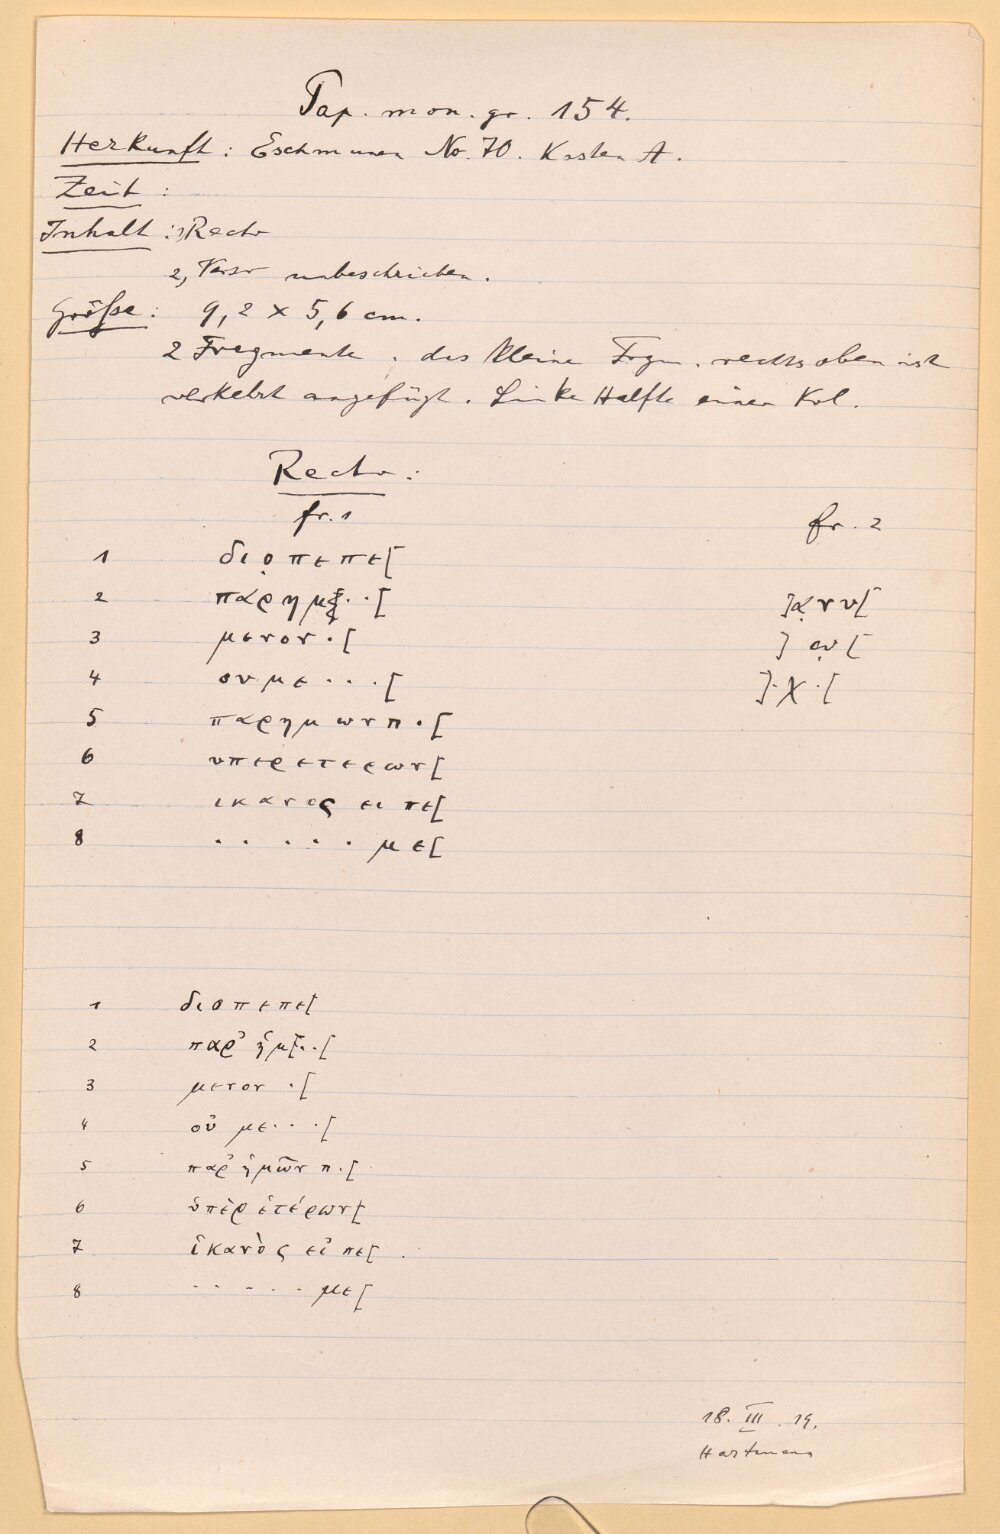 Pap. mon. gr. 154.
Herkunft : Eschmunen No. 70. Kasten A.
Zeit :
Inhalt : 1, Recto
2, Verso unbeschrieben.
Größe : 9,2 x 5,6 cm.
2 Fragmente . das kleine Frgm. rechts oben ist
verkehrt angefügt. Linke Hälfte einer Kol.
Recto :
fr. 1 fr. 2
1 διο̣πεπε[
2 παρημ . . [ ]α̣νυ[
3 μενον . [ ] ω̣ [
4 ουμε . . . [ ] . χ . [
5 παρημωνπ . [
6 υπερετερων[
7 ικανος ει πε[
8 . . . . . με[
1 διοπεπε[
2 παρ' ἡμ . . [
3 μενον . [
4 οὐ με . . . [
5 παρ' ἡμῶν π . [
6 ὑπὲρ ἑτέρων[
7 ἱκανὸς εἰ πε[
8 . . . . . με[
18. III . 19.
Hartmann